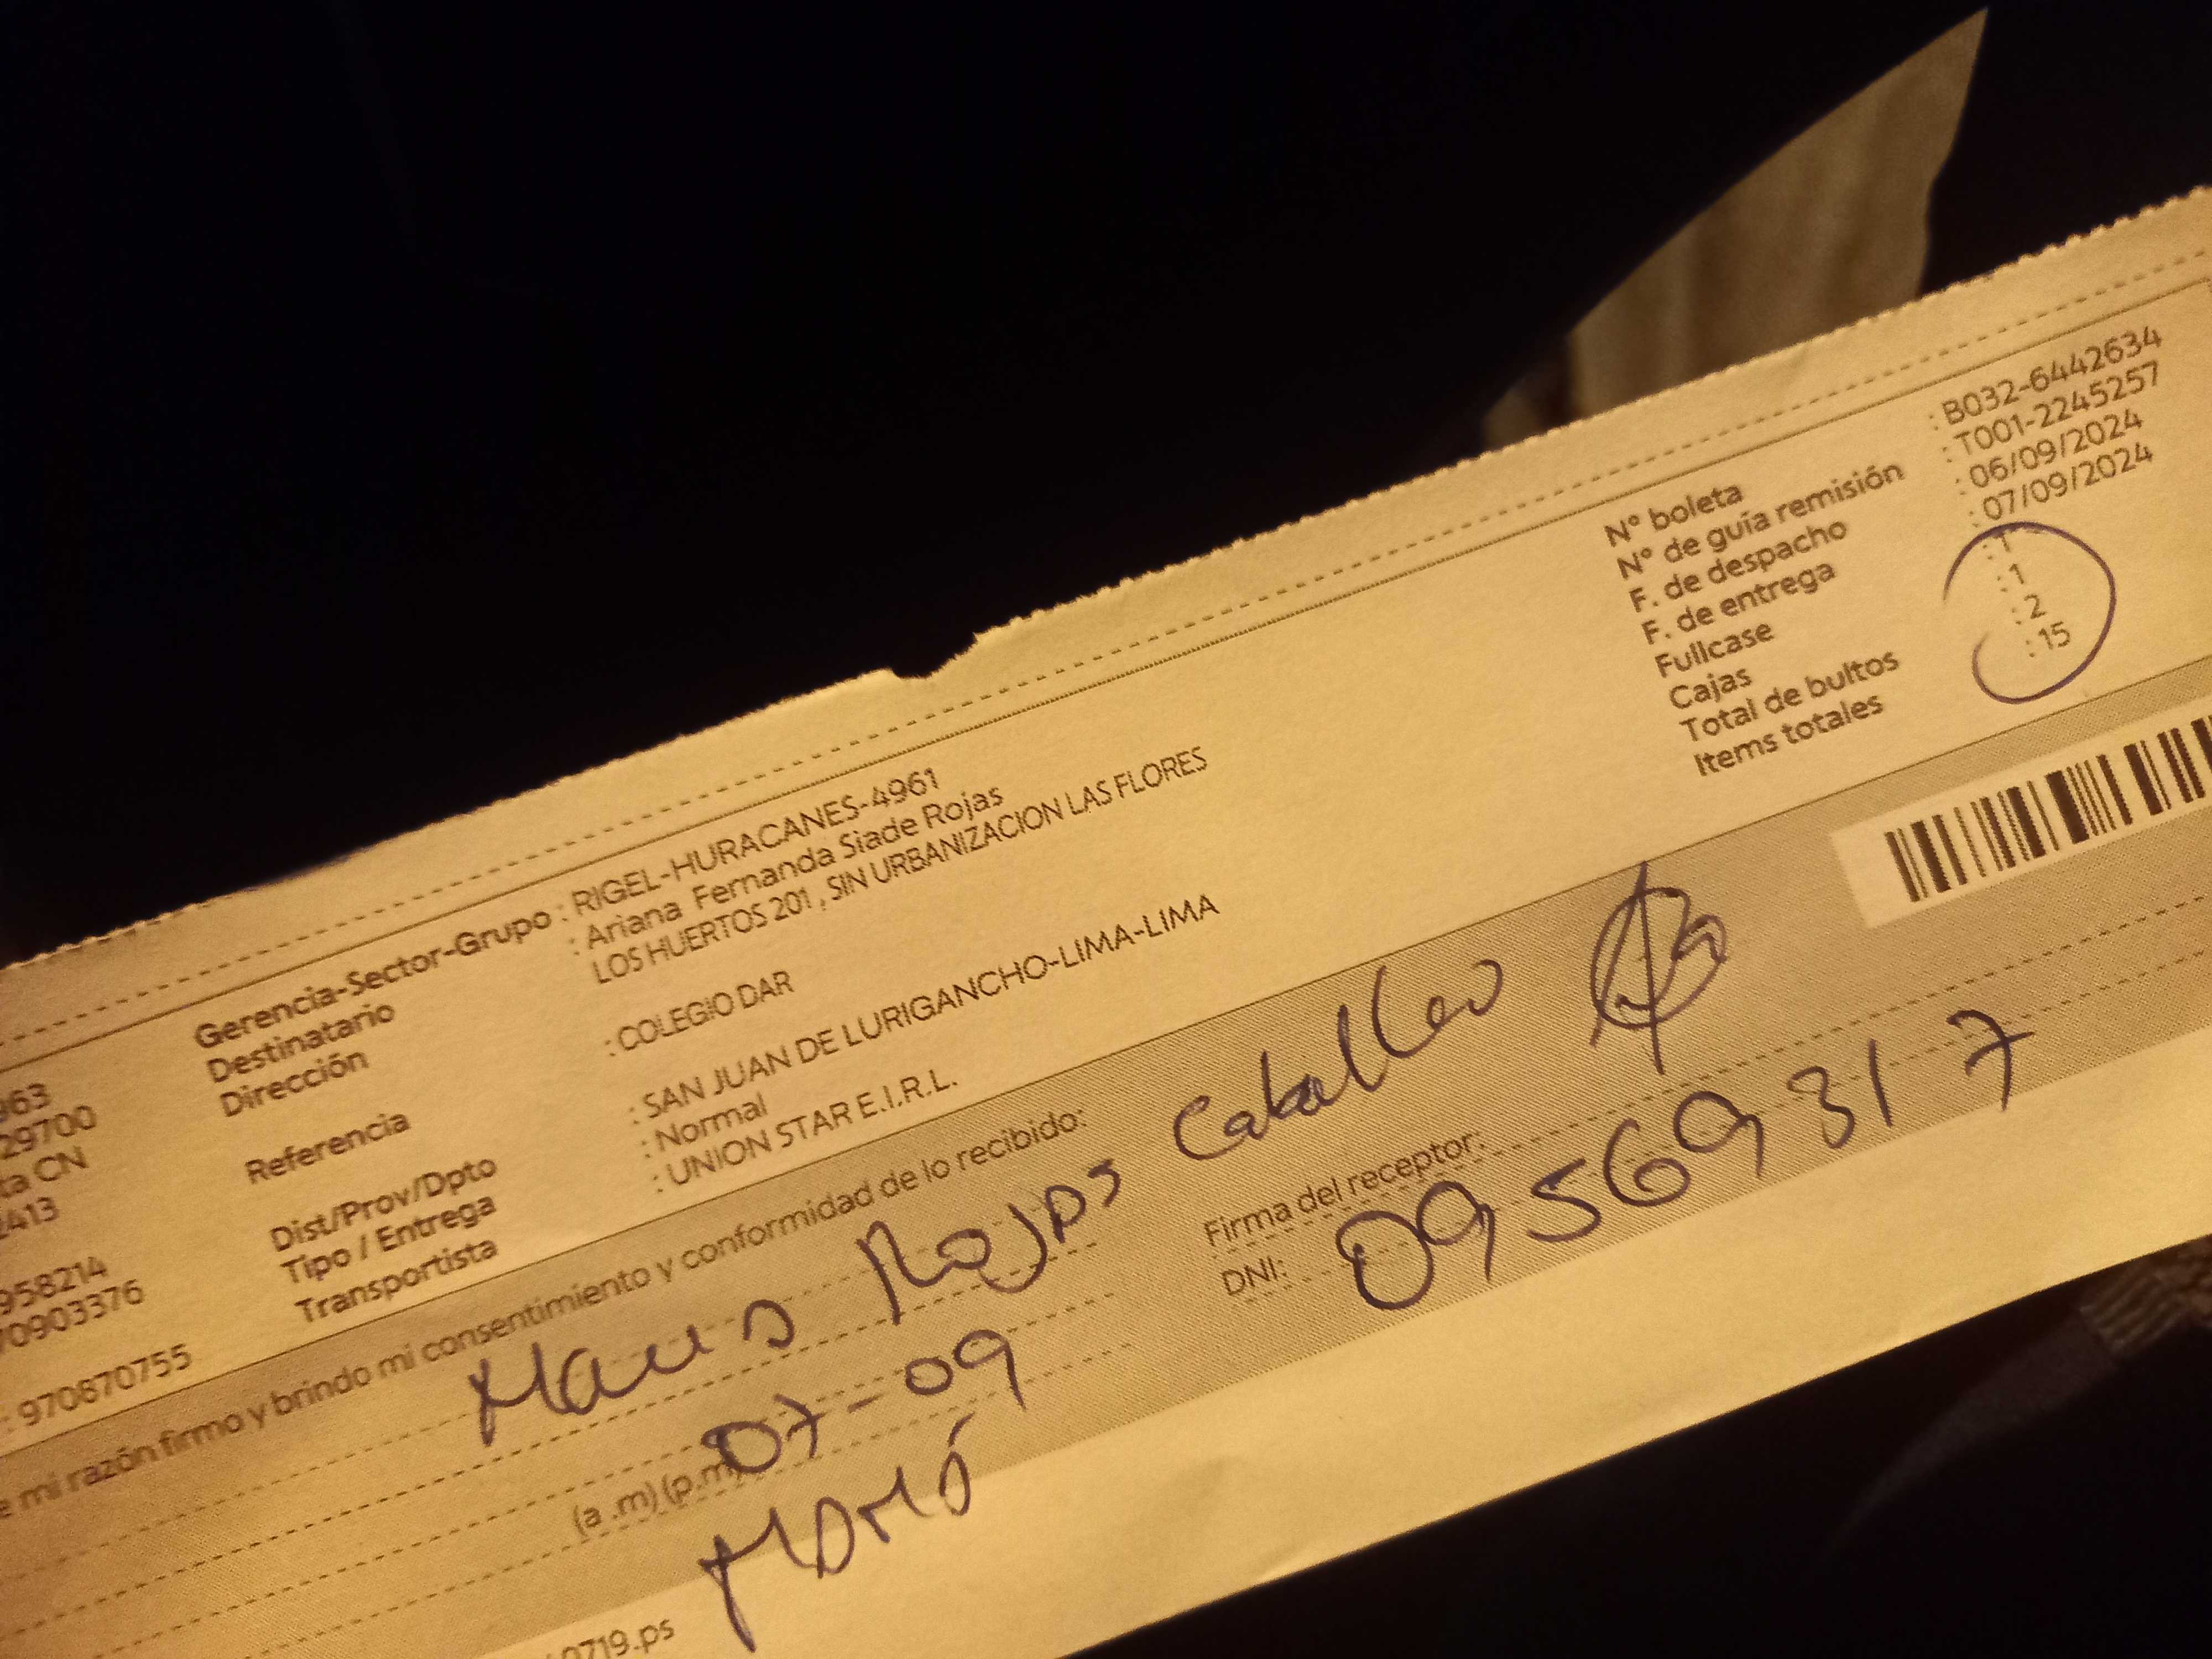 963
29700
ta CN
2413
958214
70903376
: 970870755
Gerencia-Sector-Grupo : RIGEL-HURACANES-4961
Destinatario : Ariana Fernanda Siade Rojas
Dirección LOS HUERTOS 201 , SIN URBANIZACION LAS FLORES
Referencia : COLEGIO DAR
Dist/Prov/Dpto : SAN JUAN DE LURIGANCHO-LIMA-LIMA
Tipo / Entrega : Normal
Transportista : UNION STAR E.I.R.L.
N° boleta : B032-6442634
N° de guía remisión : T001-2245257
F. de despacho : 06/09/2024
F. de entrega : 07/09/2024
Fullcase : 1
Cajas : 1
Total de bultos : 2
Items totales : 15
e mi razón firmo y brindo mi consentimiento y conformidad de lo recibido:
Rojas Caballero
Firma del receptor:
DNI: 09569317
(a .m) (p.m) 07-09
MAMÁ
0719.ps